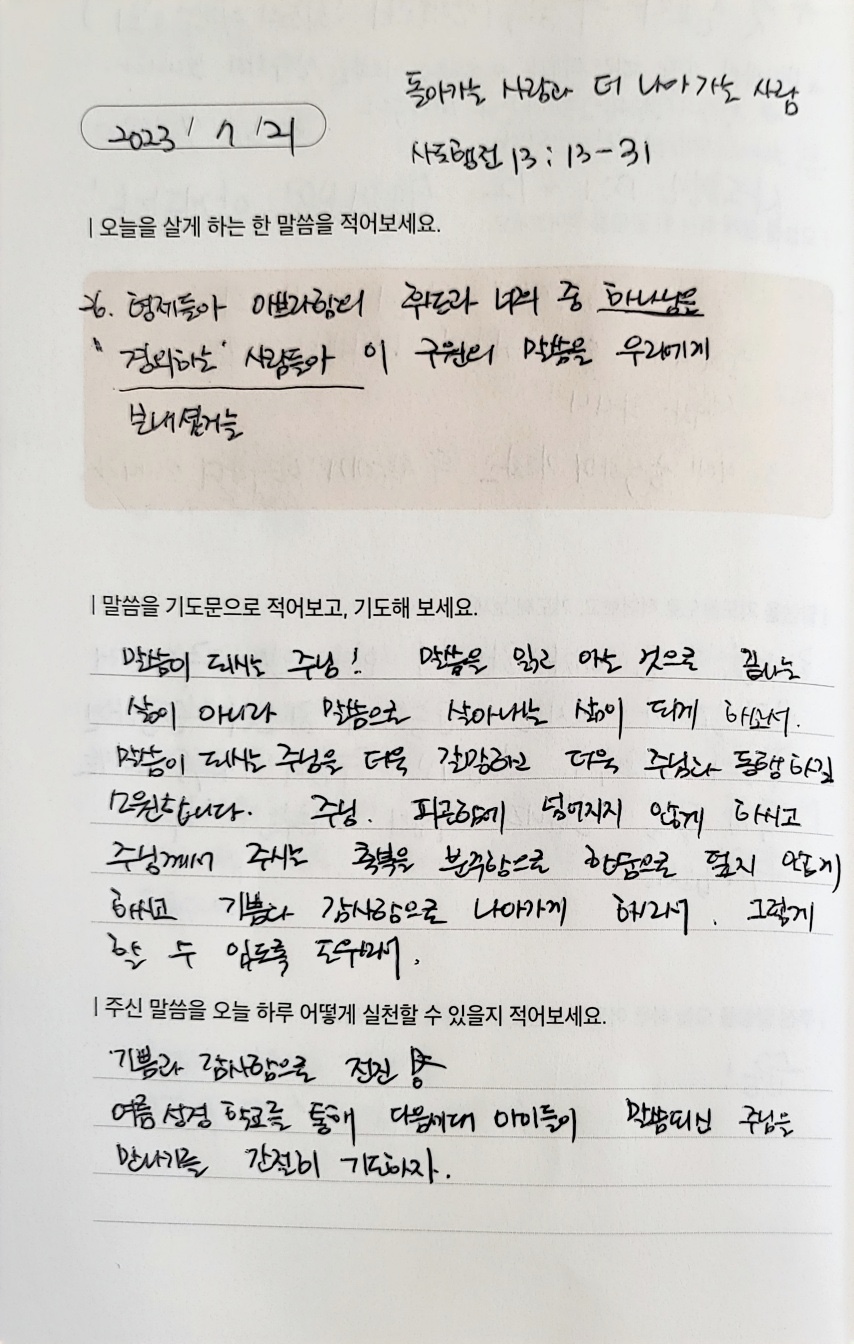 돌아가는 사람과 더 나아가는 사람
2023 / 7 / 21
사도행전 13 : 13 - 31
| 오늘을 살게 하는 한 말씀을 적어보세요.
26. 형제들아 아브라함의 후손과 너희 중 하나님을
"경외하는" 사람들아 이 구원의 말씀을 우리에게
보내셨거늘
| 말씀을 기도문으로 적어보고, 기도해 보세요.
말씀이 되시는 주님! 말씀을 읽고 아는 것으로 끝나는
삶이 아니라 말씀으로 살아내는 삶이 되게 하소서.
말씀이 되시는 주님을 더욱 갈망하고 더욱 주님과 동행하길
소원합니다. 주님. 피곤함에 넘어지지 않게 하시고
주님께서 주시는 축복을 분주함으로 한숨으로 덮지 않게
하시고 기쁨과 감사함으로 나아가게 하소서. 그렇게
할 수 있도록 도우소서.
| 주신 말씀을 오늘 하루 어떻게 실천할 수 있을지 적어보세요.
기쁨과 감사함으로 전진
여름 성경 학교를 통해 다음세대 아이들이 말씀되신 주님을
만나기를 간절히 기도하자.